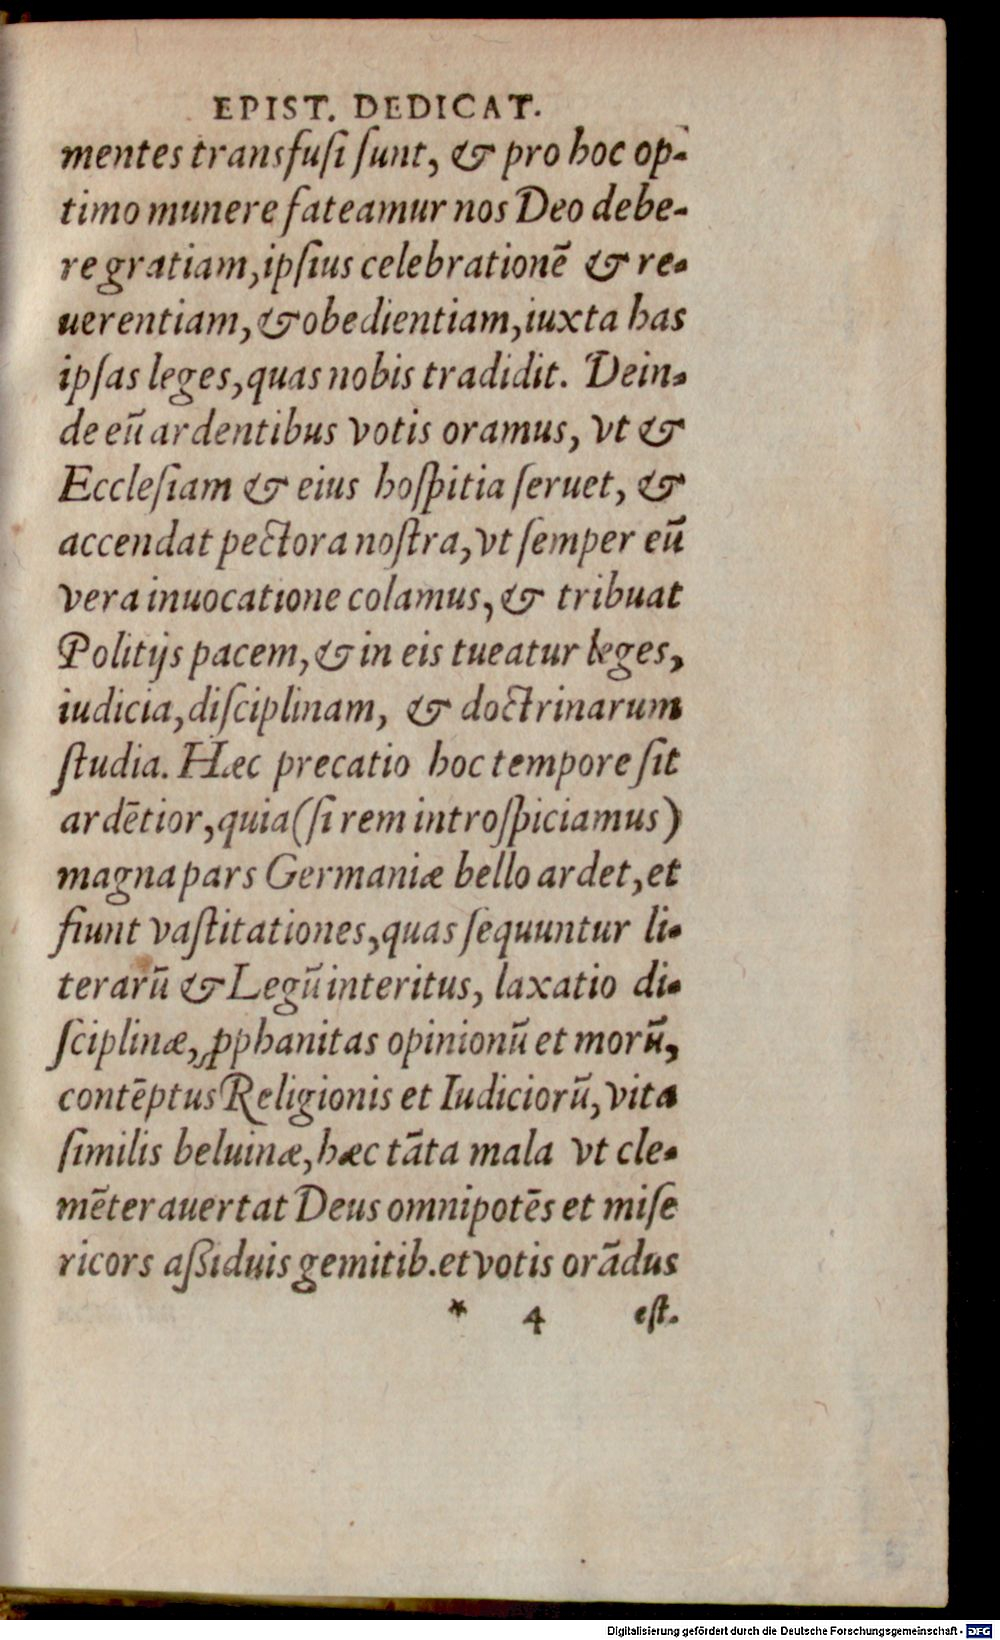 EPIST. DEDICAT.
mentes transfuſi ſunt, & pro hoc op-
timo munere fateamur nos Deo debe-
re gratiam, ipſius celebrationē & re-
uerentiam, & obedientiam, iuxta has
ipſas leges, quas nobis tradidit. Dein-
de eū ardentibus votis oramus, vt &
Eccleſiam & eius hoſpitia ſeruet, &
accendat pectora noſtra, vt ſemper eū
vera inuocatione colamus, & tribuat
Politijs pacem, & in eis tueatur leges,
iudicia, diſciplinam, & doctrinarum
ſtudia. Hæc precatio hoc tempore ſit
ardētior, quia (ſi rem introſpiciamus)
magna pars Germaniæ bello ardet, et
fiunt vaſtitationes, quas ſequuntur li-
terarū & Legū interitus, laxatio di-
ſciplinæ, ꝓphanitas opinionū et morū,
contēptus Religionis et Iudiciorū, vita
ſimilis beluinæ, hæc tāta mala vt cle-
mēter auertat Deus omnipotēs et miſe
ricors aßiduis gemitib. et votis orādus
* 4 eſt.
Digitalisierung gefördert durch die Deutsche Forschungsgemeinschaft - DFG